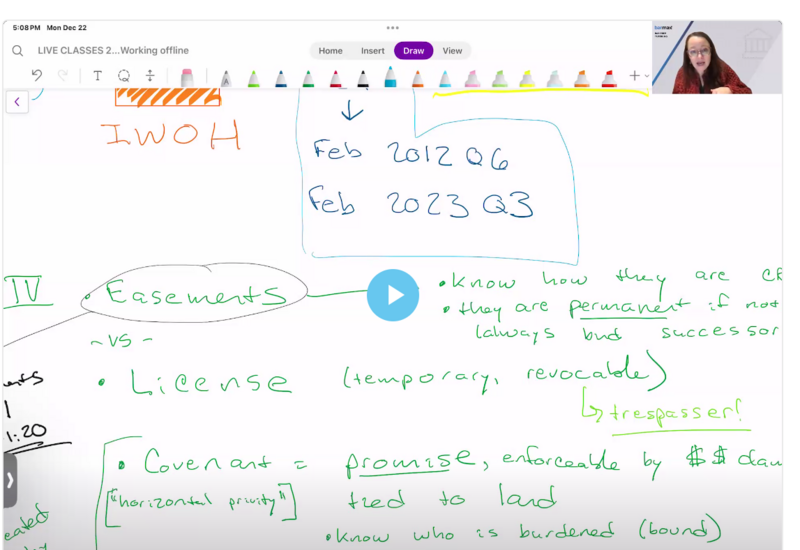 5:08 PM Mon Dec 22
LIVE CLASSES 2...Working offline
Home Insert Draw View
IWOH
Feb 2012 Q6
Feb 2023 Q3
IV
• Easements
• Know how they are
• they are permanent if not
(always bind successor
- vs -
• License (temporary, revocable)
trespasser!
1:20
• Covenant = promise, enforceable by $$
["horizontal privity"] tied to land
• Know who is burdened (bound)